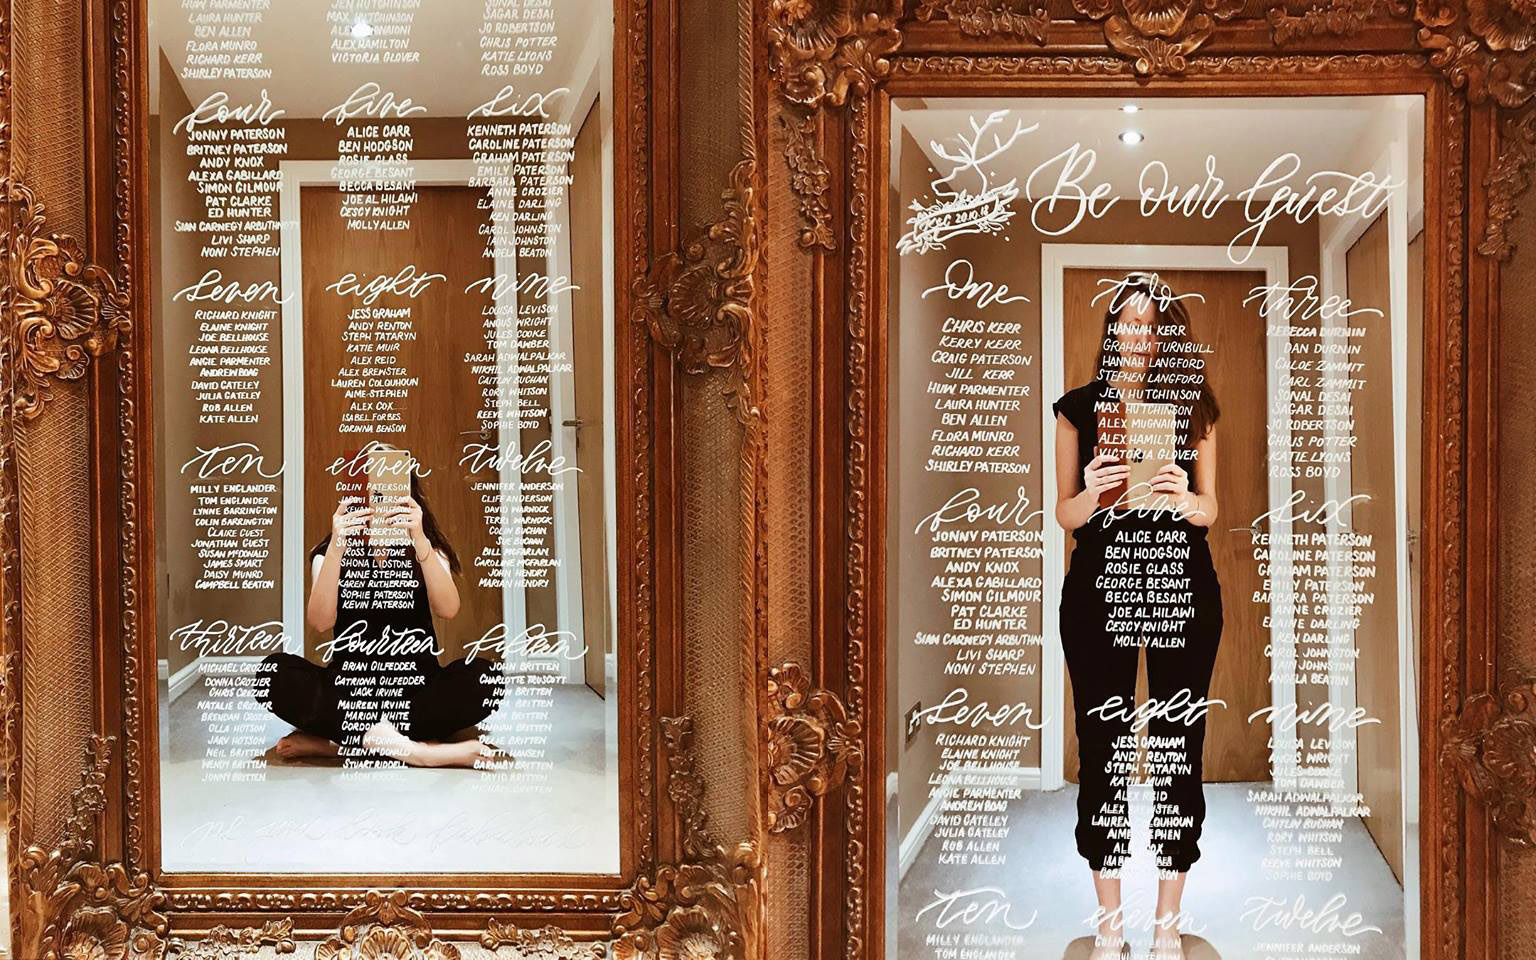 HUW PARMENTER
LAURA HUNTER
BEN ALLEN
FLORA MUNRO
RICHARD KERR
SHIRLEY PATERSON
JEN HUTCHINSON
MAX HUTCHINSON
ALEX MUGNAIONI
ALEX HAMILTON
VICTORIA GLOVER
SONAL DESAI
SAGAR DESAI
JO ROBERTSON
CHRIS POTTER
KATIE LYONS
ROSS BOYD
four
JONNY PATERSON
BRITNEY PATERSON
ANDY KNOX
ALEXA GABILLARD
SIMON GILMOUR
PAT CLARKE
ED HUNTER
SIAN CARNEGY ARBUTHNOTT
LIVI SHARP
NONI STEPHEN
five
ALICE CARR
BEN HODGSON
ROSIE GLASS
GEORGE BESANT
BECCA BESANT
JOE AL HILAWI
CESCY KNIGHT
MOLLY ALLEN
six
KENNETH PATERSON
CAROLINE PATERSON
GRAHAM PATERSON
EMILY PATERSON
BARBARA PATERSON
ANNE CROZIER
ELAINE DARLING
KEN DARLING
CAROL JOHNSTON
IAIN JOHNSTON
ANGELA BEATON
seven
RICHARD KNIGHT
ELAINE KNIGHT
JOE BELLHOUSE
LEONA BELLHOUSE
ANGIE PARMENTER
ANDREW BOAG
DAVID GATELEY
JULIA GATELEY
ROB ALLEN
KATE ALLEN
eight
JESS GRAHAM
ANDY RENTON
STEPH TATARYN
KATIE MUIR
ALEX REID
ALEX BREWSTER
LAUREN COLQUHOUN
AIME STEPHEN
ALEX COX
ISABEL FORBES
CORINNA BENSON
nine
LOUISA LEVISON
ANGUS WRIGHT
JULES COOKE
TOM DAWBER
SARAH ADWALPALKAR
NIKHIL ADWALPALKAR
CAITLIN BUCHAN
RORY WHITSON
STEPH BELL
REEVE WHITSON
SOPHIE BOYD
ten
MILLY ENGLANDER
TOM ENGLANDER
LYNNE BARRINGTON
COLIN BARRINGTON
CLAIRE GUEST
JONATHAN GUEST
SUSAN McDONALD
JAMES SMART
DAISY MUNRO
CAMPBELL BEATON
eleven
COLIN PATERSON
JACQUI PATERSON
KEVAN WHITSON
WHITSON
ALAN ROBERTSON
SUSAN ROBERTSON
ROSS LIDSTONE
SHONA LIDSTONE
ANNE STEPHEN
KAREN RUTHERFORD
SOPHIE PATERSON
KEVIN PATERSON
twelve
JENNIFER ANDERSON
CLIFF ANDERSON
DAVID WARNOCK
TERRI WARNOCK
COLIN BUCHAN
SUE BUCHAN
BILL McFARLAN
CAROLINE McFARLAN
JOHN HENDRY
MARIAN HENDRY
thirteen
MICHAEL CROZIER
DONNA CROZIER
CHRIS CROZIER
NATALIE CROZIER
BRENDAN CROZIER
OLLA HOTSON
JARV HOTSON
NEIL BRITTEN
WENDY BRITTEN
JONNY BRITTEN
fourteen
BRIAN GILFEDDER
CATRIONA GILFEDDER
JACK IRVINE
MAUREEN IRVINE
MARION WHITE
GORDON WHITE
JIM McDONALD
EILEEN McDONALD
STUART RIDDELL
ALISON RIDDELL
fifteen
JOHN BRITTEN
CHARLOTTE TRUSCOTT
HUW BRITTEN
PIPPA BRITTEN
SAM BRITTEN
HANNAH BRITTEN
BRITTEN
HATTI HANSEN
BARNABY BRITTEN
DAVID BRITTEN
MICHAEL BRITTEN
Be our Guest
One
CHRIS KERR
KERRY KERR
CRAIG PATERSON
JILL KERR
HUW PARMENTER
LAURA HUNTER
BEN ALLEN
FLORA MUNRO
RICHARD KERR
SHIRLEY PATERSON
two
HANNAH KERR
GRAHAM TURNBULL
HANNAH LANGFORD
STEPHEN LANGFORD
JEN HUTCHINSON
MAX HUTCHINSON
ALEX MUGNAIONI
ALEX HAMILTON
VICTORIA GLOVER
three
REBECCA DURNIN
DAN DURNIN
CHLOE ZAMMIT
CARL ZAMMIT
SONAL DESAI
SAGAR DESAI
JO ROBERTSON
CHRIS POTTER
KATIE LYONS
ROSS BOYD
four
JONNY PATERSON
BRITNEY PATERSON
ANDY KNOX
ALEXA GABILLARD
SIMON GILMOUR
PAT CLARKE
ED HUNTER
SIAN CARNEGY ARBUTHN
LIVI SHARP
NONI STEPHEN
five
ALICE CARR
BEN HODGSON
ROSIE GLASS
GEORGE BESANT
BECCA BESANT
JOE AL HILAWI
CESCY KNIGHT
MOLLY ALLEN
six
KENNETH PATERSON
CAROLINE PATERSON
GRAHAM PATERSON
EMILY PATERSON
BARBARA PATERSON
ANNE CROZIER
ELAINE DARLING
KEN DARLING
CAROL JOHNSTON
IAIN JOHNSTON
ANGELA BEATON
seven
RICHARD KNIGHT
ELAINE KNIGHT
JOE BELLHOUSE
LEONA BELLHOUSE
ANGIE PARMENTER
ANDREW BOAG
DAVID GATELEY
JULIA GATELEY
ROB ALLEN
KATE ALLEN
eight
JESS GRAHAM
ANDY RENTON
STEPH TATARYN
KATIE MUIR
ALEX REID
ALEX BREWSTER
LAUREN COLQUHOUN
AIME STEPHEN
ALEX COX
nine
LOUISA LEVISON
ANGUS WRIGHT
JULES COOKE
TOM DAWBER
SARAH ADWALPALKAR
NIKHIL ADWALPALKAR
CAITLIN BUCHAN
RORY WHITSON
STEPH BELL
REEVE WHITSON
SOPHIE BOYD
ten
MILLY ENGLANDER
TOM ENGLANDER
eleven
COLIN PATERSON
JACQUI PATERSON
twelve
JENNIFER ANDERSON
CLIFF ANDERSON